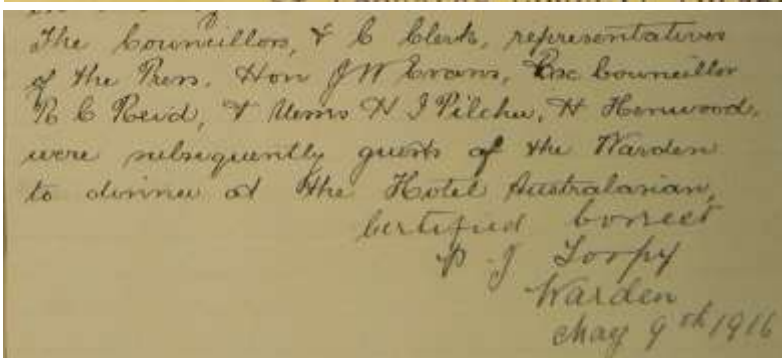 The Councillors, & C Clerk, representatives
of the Press. Hon J W Evans, Exc Councillor
R C Reid, & Messrs H J Pilcher, H Henwood,
were subsequently guests of the Warden
to dinner at the Hotel Australasian,
Certified Correct
P J Torpy
Warden
May 9th 1916